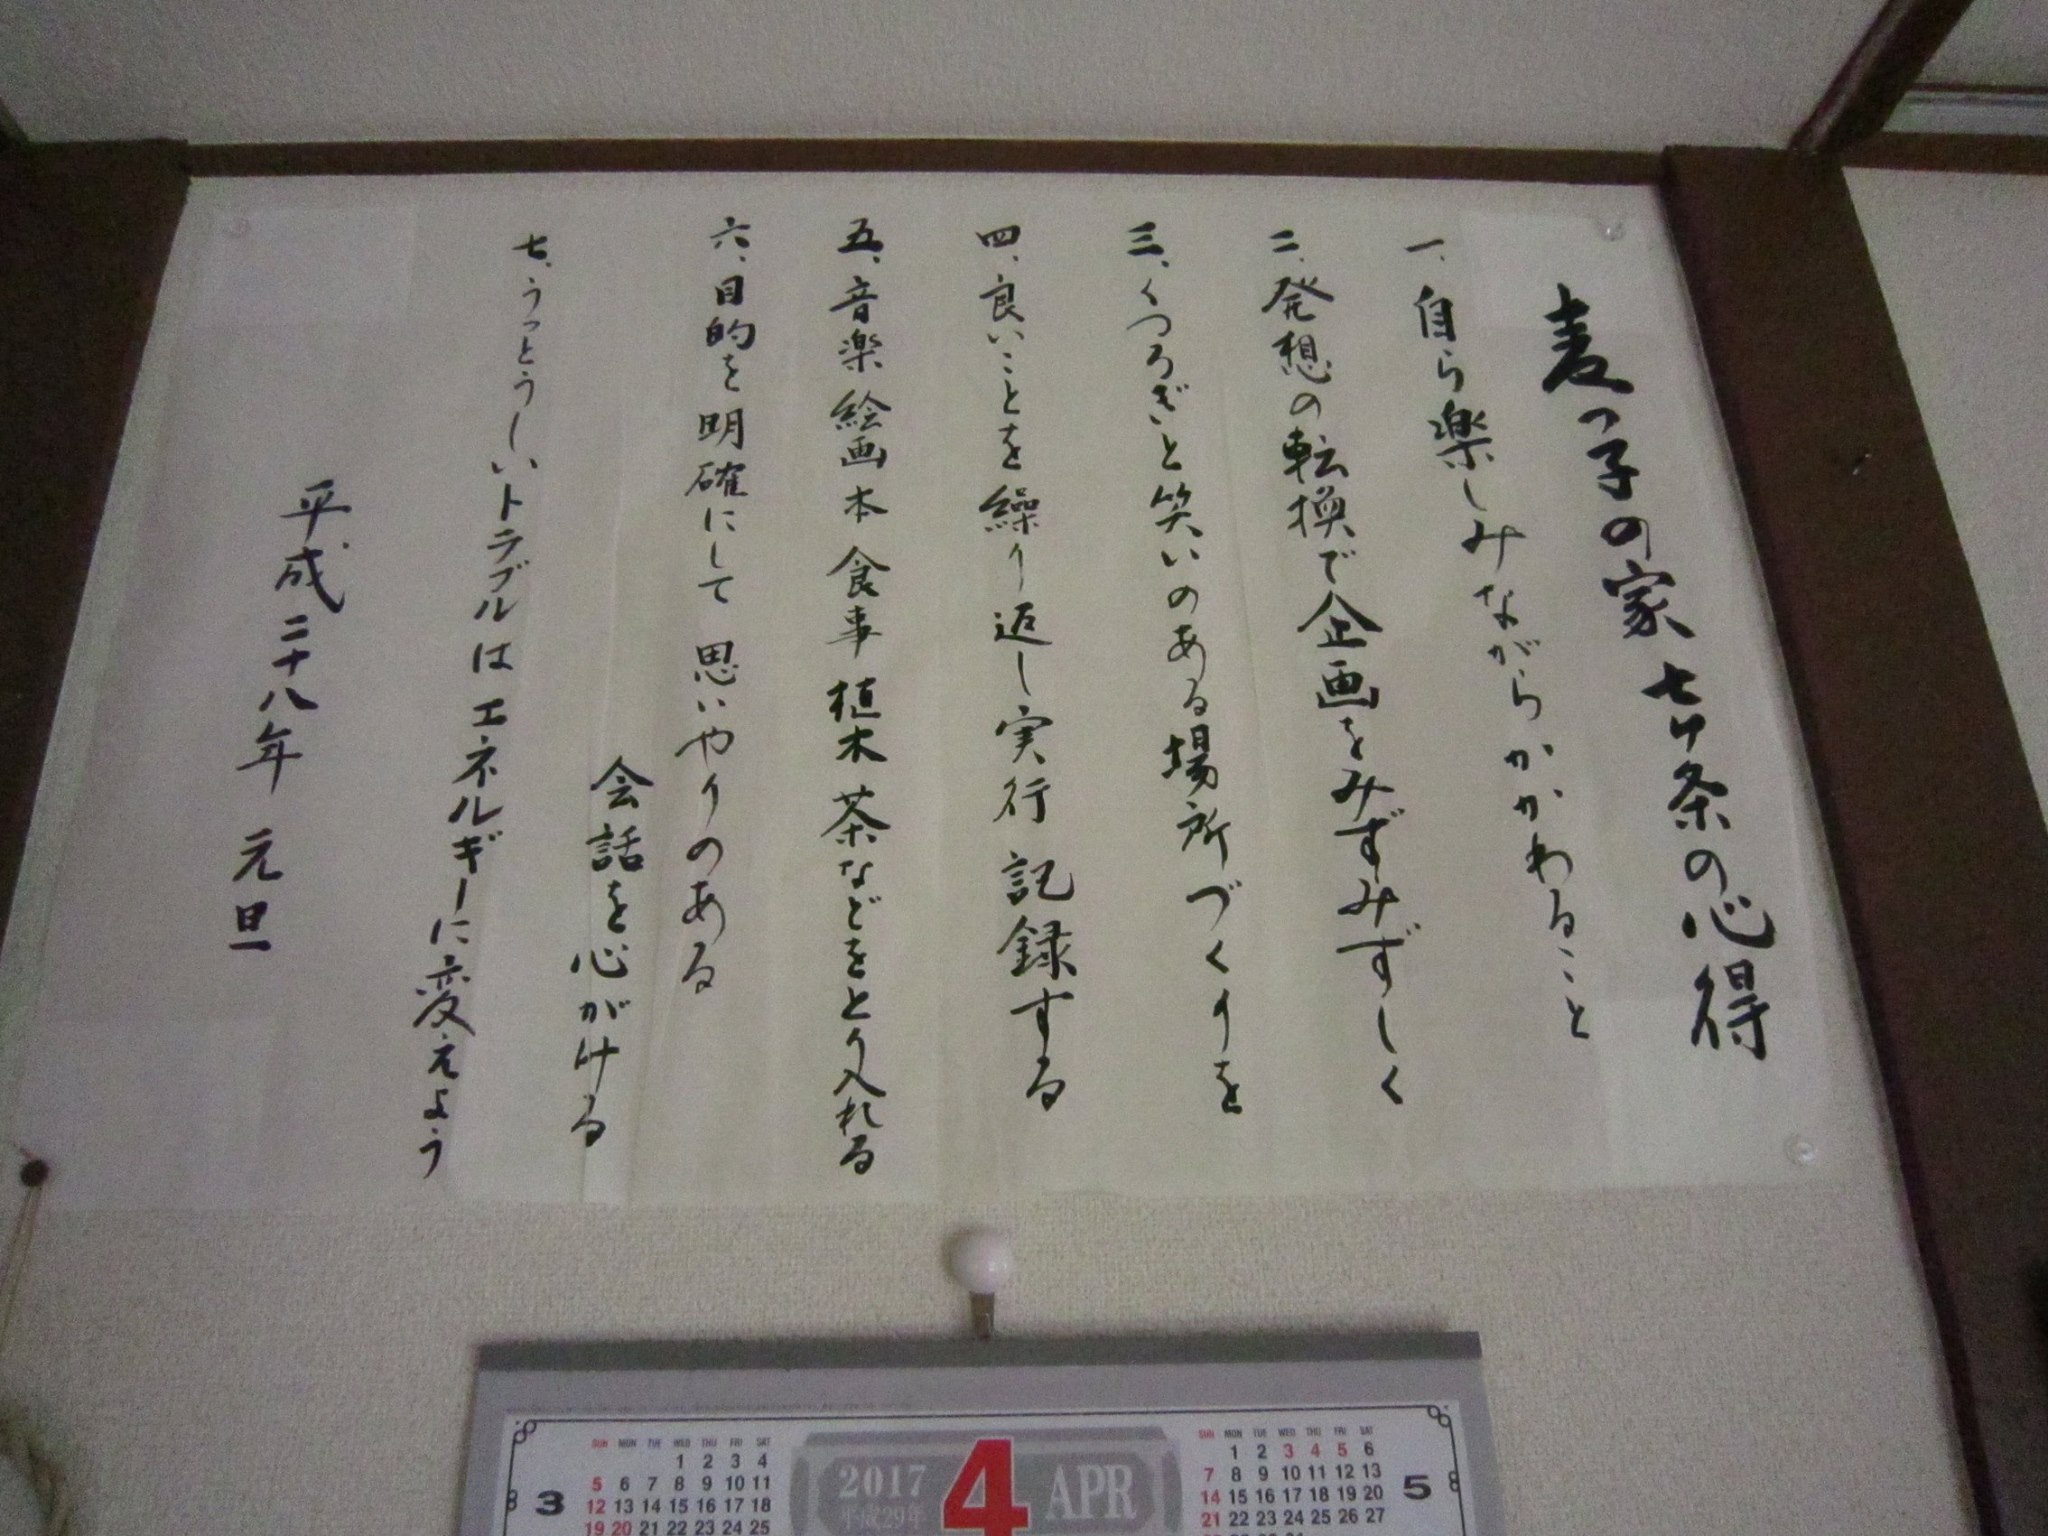 麦っ子の家 七ヶ条の心得
一、自ら楽しみながらかかわること
二、発想の転換で企画をみずみずしく
三、くつろぎと笑いのある場所づくりを
四、良いことを繰り返し実行 記録する
五、音楽 絵画 本 食事 植木 茶などをとり入れる
六、目的を明確にして 思いやりのある
会話を心がける
七、うっとうしいトラブルは エネルギーに変えよう
平成二十八年 元旦
3
SUN MON TUE WED THU FRI SAT
1 2 3 4
5 6 7 8 9 10 11
12 13 14 15 16 17 18
19 20 21 22 23 24 25
2017
平成29年
4
APR
SUN MON TUE WED THU FRI SAT
1 2 3 4 5 6
7 8 9 10 11 12 13
14 15 16 17 18 19 20
21 22 23 24 25 26 27
5